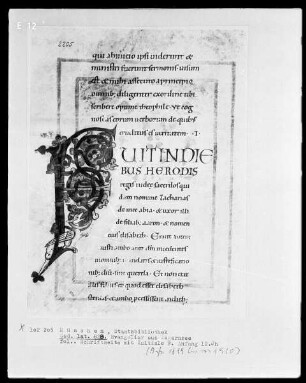 E 12
2205
qui ab initio ipsi uiderunt et
ministri fuerunt sermonis uisum
est et mihi assecuto a principio
omnibus diligenter ex ordine tibi
scribere optime theophile ut cog
noscas eorum uerborum de quibus
eruditus es ueritatem · I ·
FUIT IN DIE
BUS HERODIS
regis iudeae sacerdos qui
dam nomine Zacharias
de uice abia et uxor illi
de filiab; aaron et nomen
eius elisabeth Erant autem
iusti ambo ante dm incedentes
in omnib; mandatis et iustificatio
nib; dni sine querela Et non erat
illis filius eo quod esset elisabeth
sterilis et ambo processissent in dieb;
X
München, Staatsbibliothek
Cod. lat. Evangeliar aus
Schriftseite mit Initiale F. Anfang 12.Jh